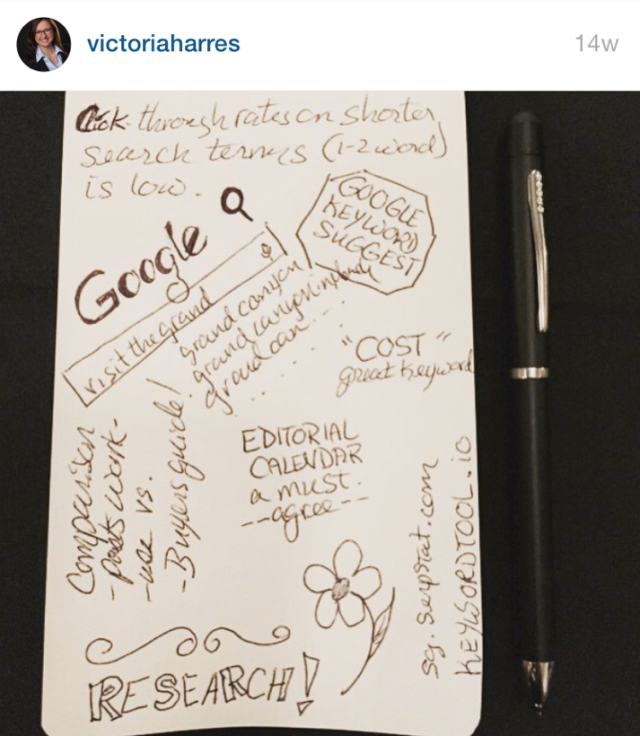 victoriaharres
14w
Click-through rates on shorter
search terms (1-2 word)
is low.
GOOGLE
KEYWORD
SUGGEST
Google
visit the grand
grand canyon
grand canyon in
grand can...
"COST"
great keyword
Comparison
- Posts work -
- use vs.
- Buyers guide!
EDITORIAL
CALENDAR
a must.
--agree--
sg.serpstat.com
KEYWORDTOOL.io
RESEARCH!